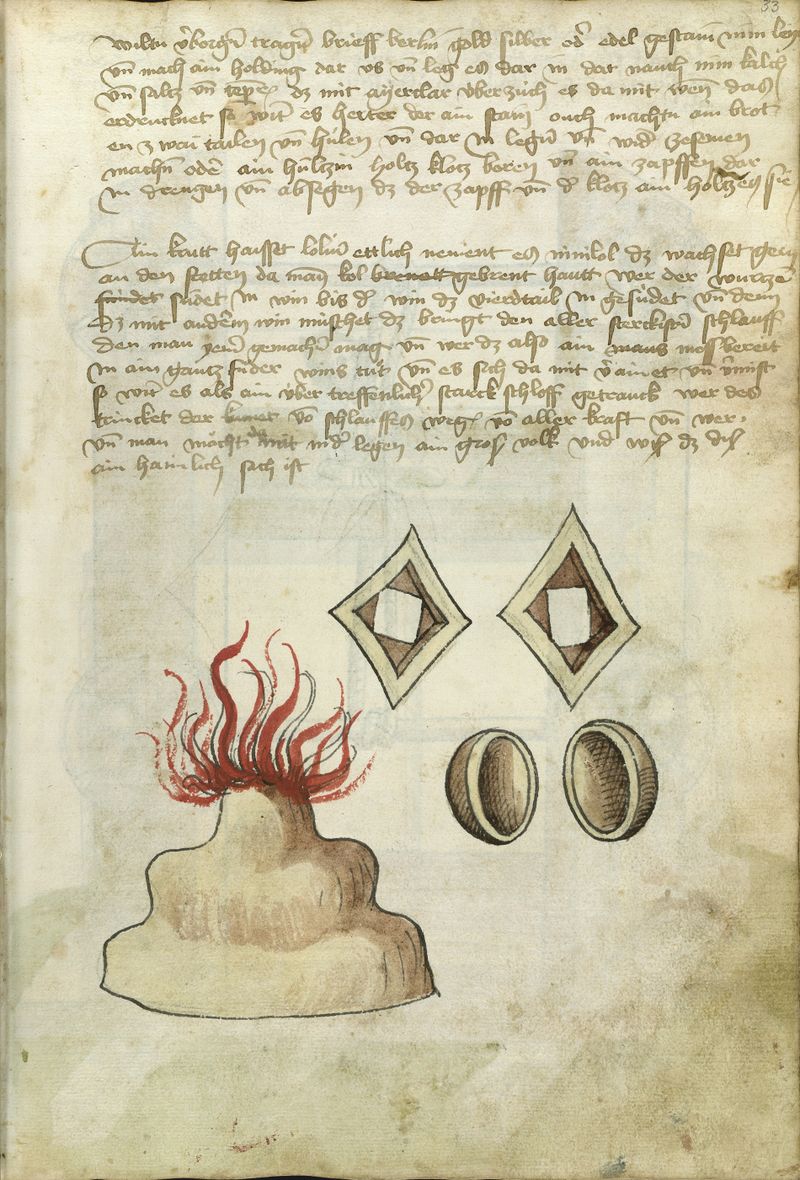 33
wiltu v̄borgē tragē brieff berlin gold silber od̄ edel gestain nim
vn̄ mach ain holding dar vs vn̄ leg es dar in dar nauch nim kalch
vn̄ saltz vn̄ dz mit ayerclar vberzuch es da mit wen̄ das
erdrucknet so wirt es herter der ain stain ouch machtu ain brot
en zwai tailen vn̄ hülen vn̄ dar in legen vn̄ wid̄ zesemen
machn̄ oder ain hültzin holtz klotz boren vn̄ ain zapffen dar
in drengen vn̄ absegen dz der zapff vn̄ d̄ klotz ain holtz sie
Ain krutt haisset ettlich nement es dz wachset gern
an den stetten da man kol gebrent hautt wer der wurtze
südet in win bis d̄ win dz vierdtail in gesüdet vn̄ denn
dz mit anderm win müschet dz bringt den aller sterckisten schlauff
den man gemachen mag vn̄ wer dz also ain mass berait
in ain gantz füder wins tůt vn̄ es sich da mit vn̄
so wirt es als ain über treffenlich starck schloff getranck wer des
trincket der kumet vō schlauffes wegē vō aller kraft vn̄ wer
vn̄ man möcht da mit nid̄ legen ain gross volk und dz
ain haimlich sach ist